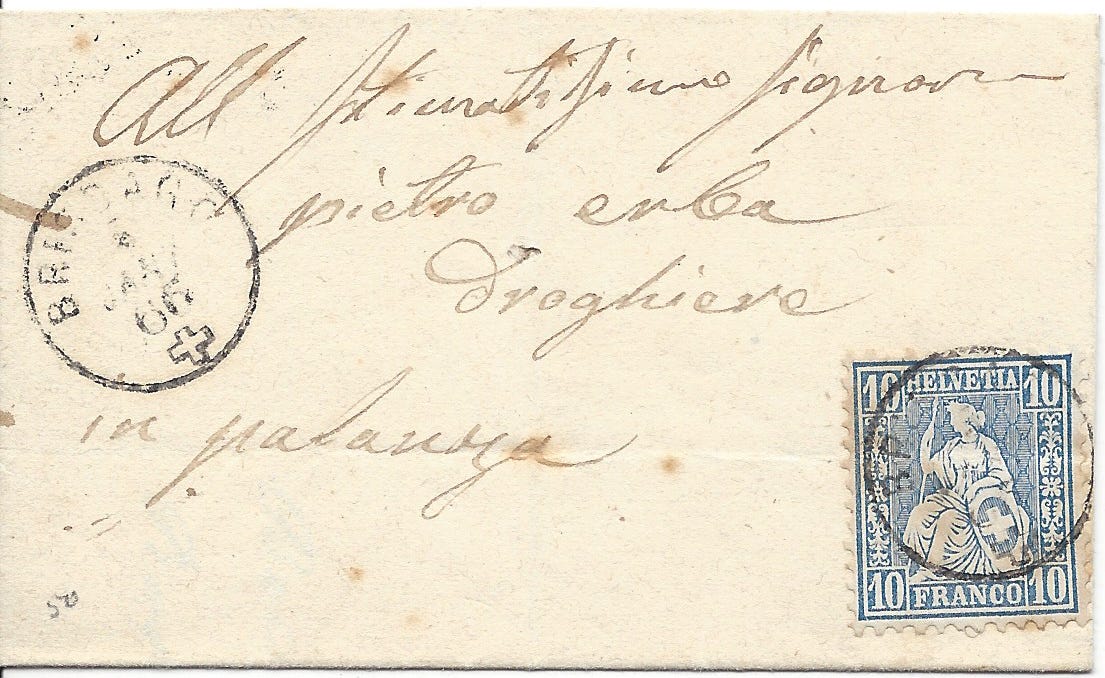 All Stimatissimo Signor
pietro erba
droghiere
in palanza
BRISSAGO
JAN
66
10 HELVETIA 10
10 FRANCO 10
50